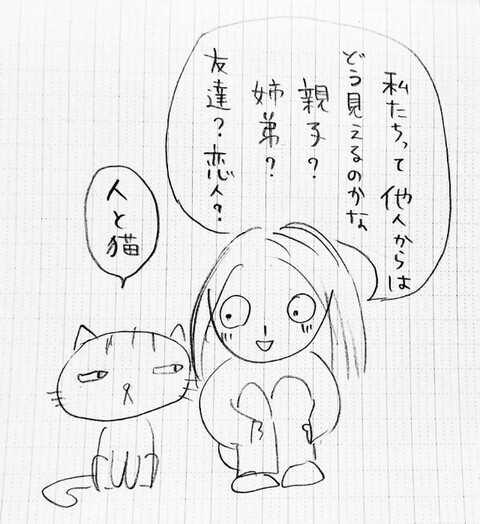 私たちって他人からは
どう見えるのかな
親子？
姉弟？
友達？恋人？
人と猫